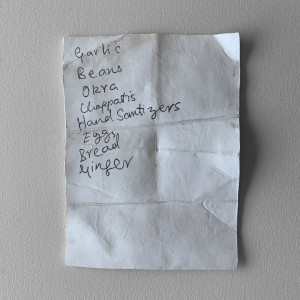 Garlic
Beans
Okra
Chappatis
Hand Sanitizers
Eggs
Bread
Ginger